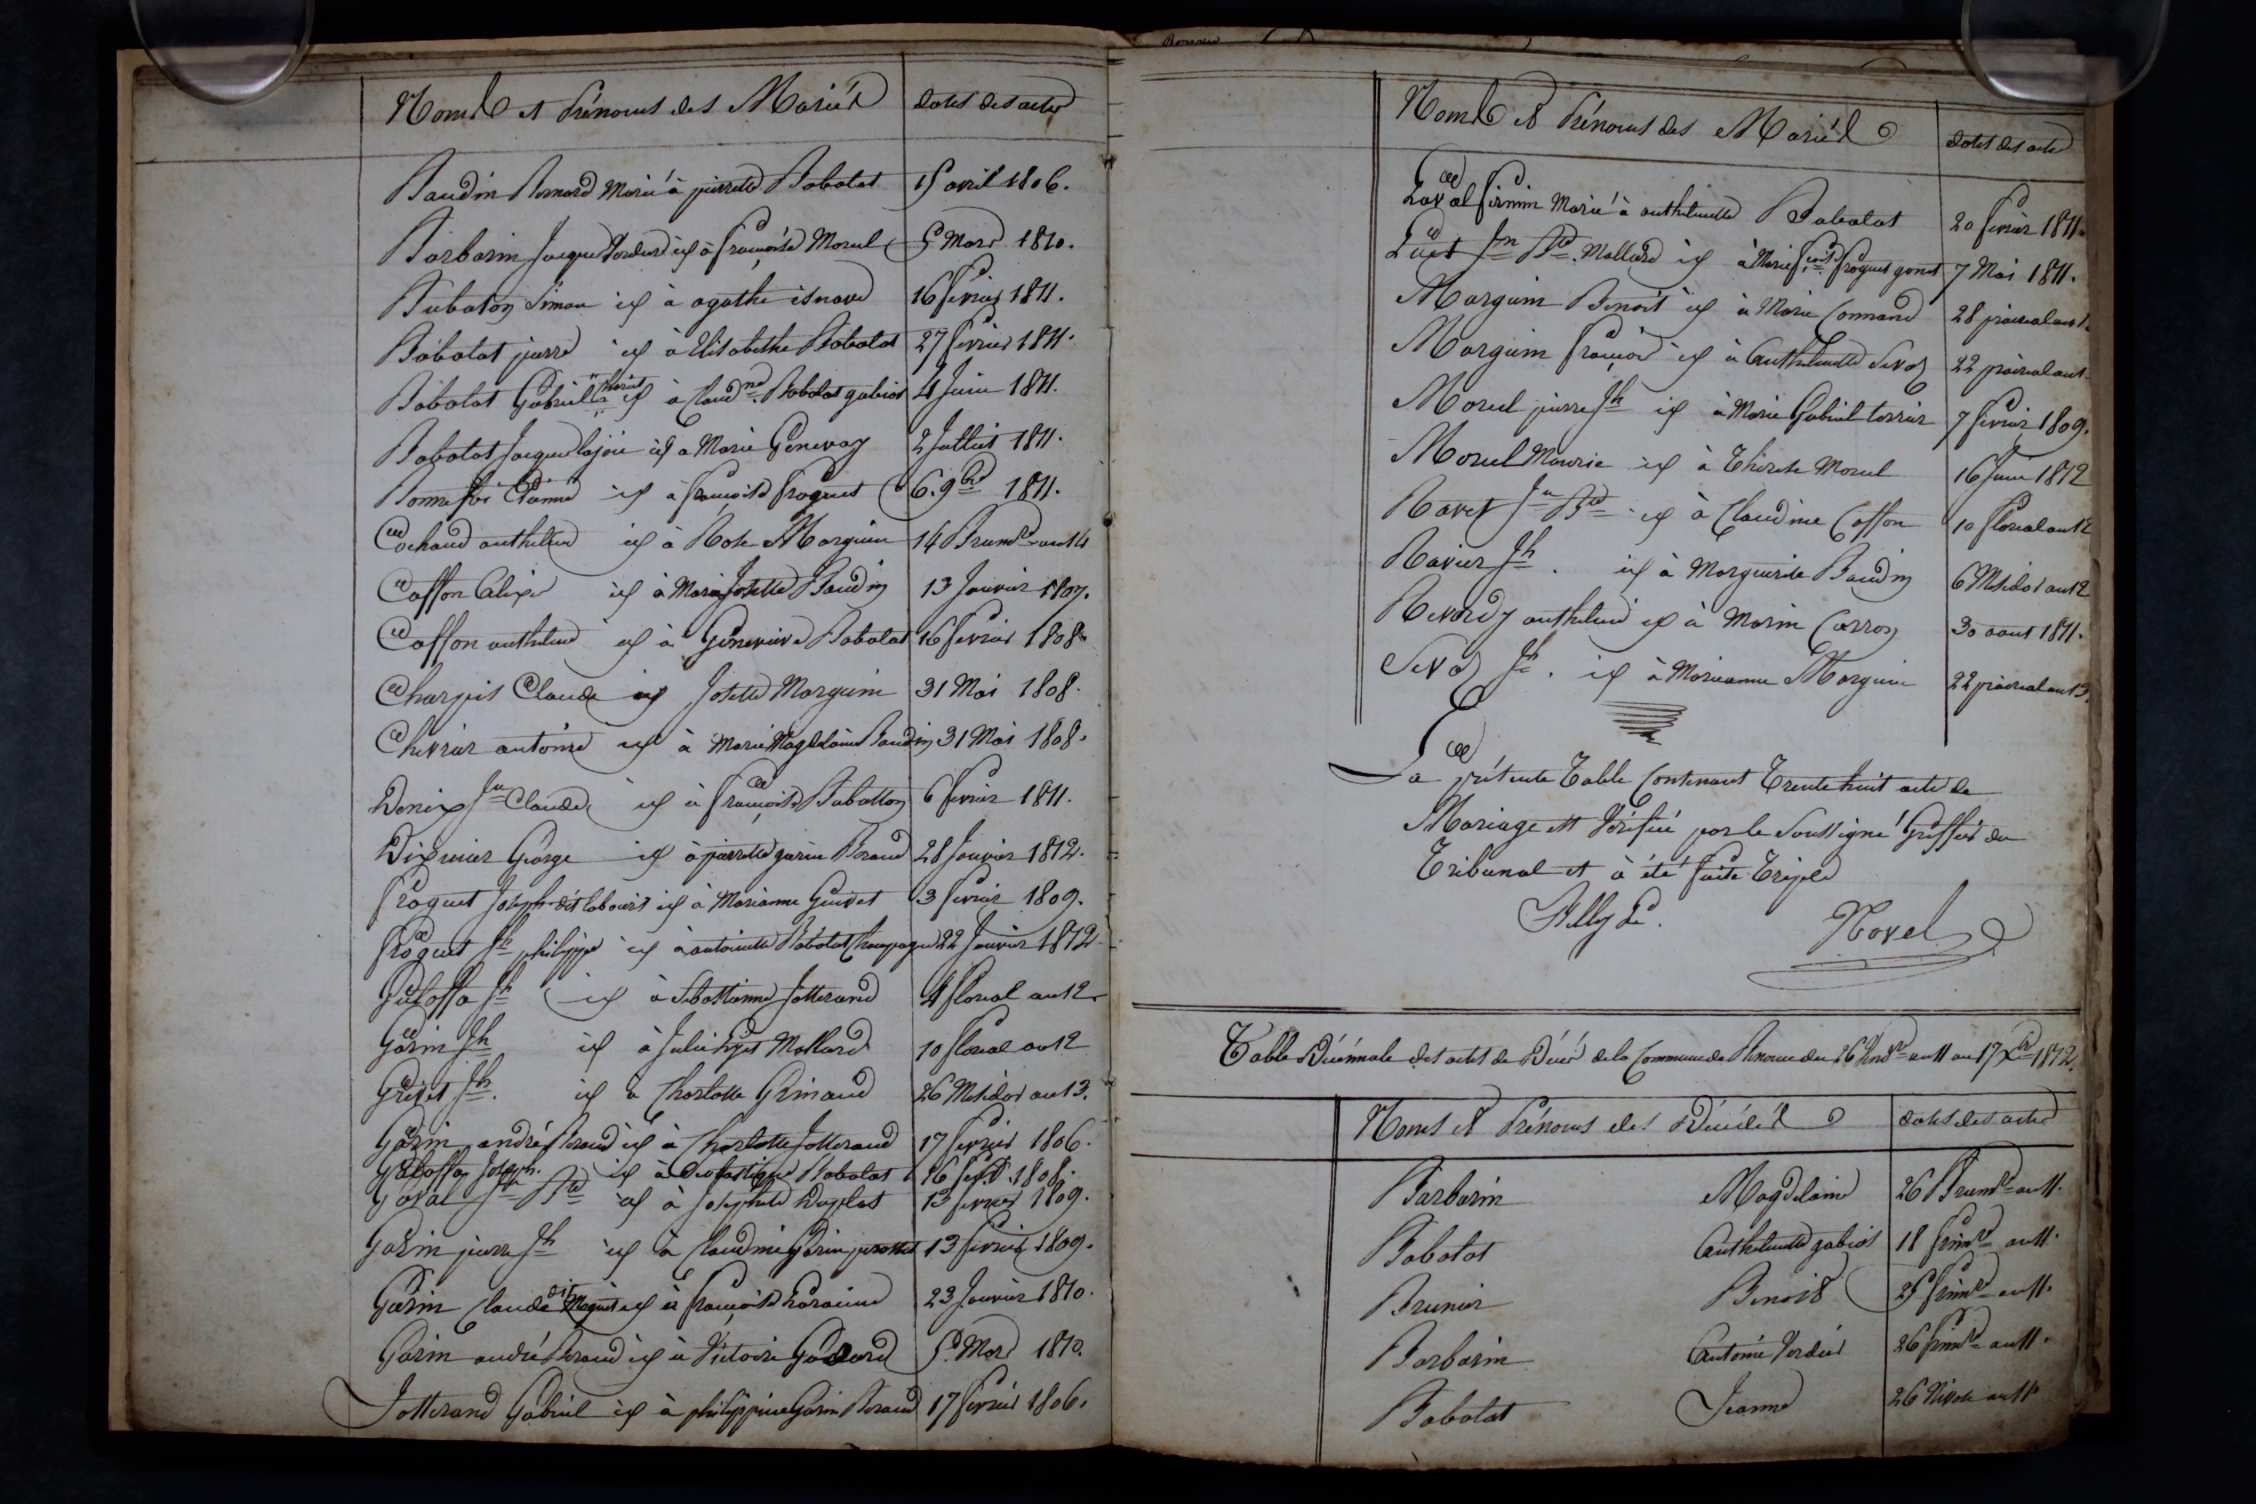 Noms et Prénoms des Mariés dates des actes
Baudin Bernard Marié à pierrette Babolat 15 avril 1806.
Barbarin Jacque Verdure id à françoise Morel 5 Mars 1810.
Bubaton Simon id à agathe isnard 16 fevrier 1811.
Babolat pierre id à Elisabethe Babolat 27 fevrier 1811.
Babolat Gabriel id à Claudne Babolat gabiot 4 Juin 1811.
Babolat Jacque lajoie id a Marie Genevay 2 Juillet 1811.
id à françoise froquet 6. 9bre 1811.
Cochaud anthelme id à Rose Marguin 14 Brumre an 14
Caffon id à Marie Josette Baudin 13 Janvier 1807.
Caffon anthelme id à Geneviève Babolat 16 fevrier 1808
Charpis Claude id Josette Marguin 31 Mai 1808.
Chevrier antoine id à Marie Magdelaine Baudin 31 Mai 1808.
Denix Jn Claude id à françoise Bubatton 6 fevrier 1811.
George id à pierrette garin Beraud 28 Janvier 1812.
froquet Joseph dit id à Marianne Guidet 3 fevrier 1809.
froquet Jh philippe id à antoinette Babolat Champagne 22 Janvier 1812
Jh id à Sebastienne Jotterand 4 floreal an 12
Garin Jh id à Julie Mollard 10 floreal an 12
Jh. id à Charlotte 26 Messidor an 13.
Garin andré Beraud id à Charlotte Jotterand 17 fevrier 1806.
Joseph. id à Babolat 16 1808.
Jn Bte id à Josephte Duplat 13 fevrier 1809.
Garin pierre Jh id à Claudine Garin 13 fevrier 1809.
Garin Claude dit id à françoise 23 Janvier 1810.
Garin andré Beraud id à Victoire 5 Mars 1810.
Jotterand Gabriel id à philippine Garin Beraud 17 fevrier 1806.
Noms et Prénoms des Mariés dates des actes
Laval firmin Marié à anthelmette Babolat 20 fevrier 1811
Jn Bte Mollard id à Marie froquet gonet 7 Mai 1811.
Marguin Benoit id à Marie Connard 28 prairial an
Marguin françois id à Anthelmette Sevoz 22 prairial an
Morel pierre Jh id à Marie Gabriel terrier 7 fevrier 1809.
Morel Maurice id à Therese Morel 16 Juin 1812
Ravet Jn Bte id à Claudine Caffon 10 floreal an 12
Ravier Jh. id à Marguerite Baudin 6 Messidor an 12
Revardy anthelme id à Marie Carron 30 aout 1811.
Sevoz Jh. id à Marianne Marguin 22 prairial an 13
La présente Table Contenant Trente huit actes de
Mariage est Vérifié par le Soussigné Greffier du
Tribunal et à été faite Triple
Novel
Table Décennale des actes de Décés de la Commune de du 26 an 11 au 17 Xbre 1812.
Noms et Prénoms des Décédés dates des actes
Barbarin Magdelaine 26 Brumre an 11.
Babolat Anthelmette gabiot 18 frimre an 11.
Brunier Benoit 25 frimre an 11.
Barbarin Antoine Verdure 26 frimre an 11.
Babolat Jeanne 26 Nivose an 11